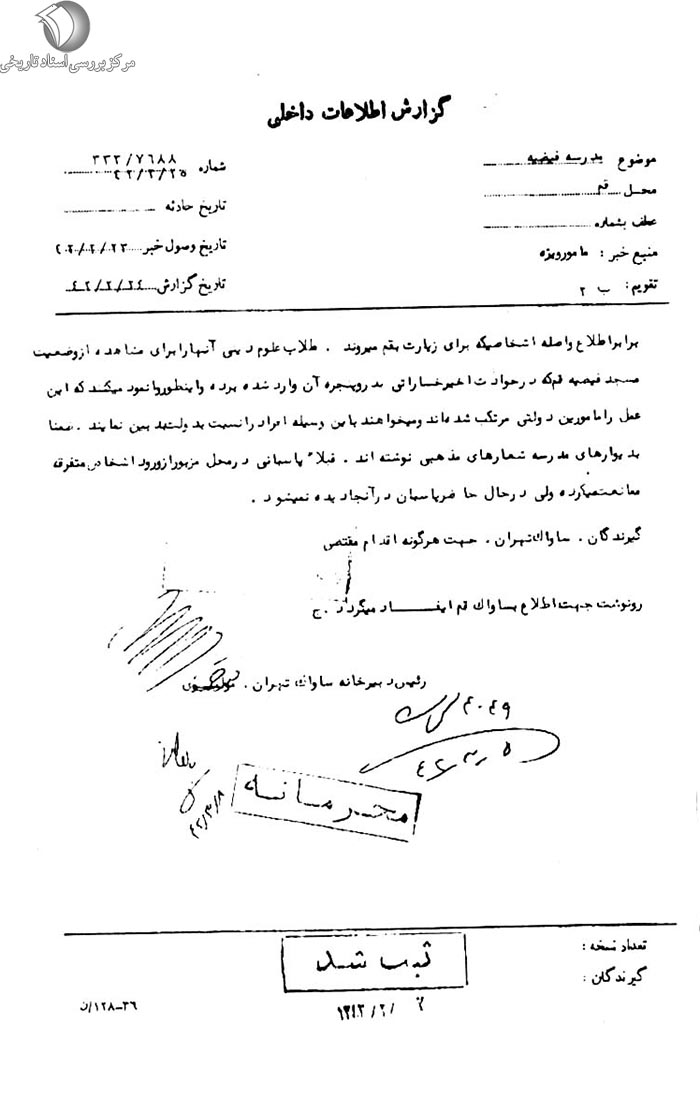 مرکز بررسی اسناد تاریخی
گزارش اطلاعات داخلی
موضوع مدرسه فیضیه
محل قم
عطف بشماره
منبع خبر : مامورویژه
تقویم : ب ۲
شماره ۳۳۲/۷۶۸۸
۴۲/۲/۲۵
تاریخ حادثه
تاریخ وصول خبر ۴۲/۲/۲۳
تاریخ گزارش ۴۲/۲/۲۴
برابراطلاع واصله اشخاصیکه برای زیارت بقم میروند . طلاب علوم دینی آنهارابرای مشاهده ازوضعیت
مسجد فیضیه قم که درحوادث اخیرخساراتی بدروپنجره آن وارد شده برده واینطوروانمود میکنند که این
عمل رامامورین دولتی مرتکب شده‌اند ومیخواهند باین وسیله افراد رانسبت بدولت بدبین نمایند . ضمنا
بدیوارهای مدرسه شعارهای مذهبی نوشته اند . قبلا پاسبانی درمحل مزبورازورود اشخاص متفرقه
ممانعت میکرده ولی درحال حاضرپاسبان درآنجادیده نمیشود .
گیرندگان . ساواک تهران . جهت هرگونه اقدام مقتضی
رونوشت جهت اطلاع بساواک قم ایفاد میگردد . ج
رئیس دبیرخانه ساواک تهران .
۴۰۴۹
۴۲/۳/۵
۴۲/۳/۸
محرمانه
تعداد نسخه :
گیرندگان :
ثبت شد
۳۶-۱۲۸/ن